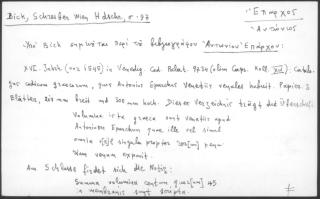 Bick, Schreiber Wien Hdschr., σ. 97
Ἔπαρχος
Ἀντώνιος
Ὑπὸ Bick σημειοῦται περὶ τοῦ βιβλιογράφου Ἀντωνίου Ἐπάρχου:
XVI. Jahrh. in Venedig. Cod. Palat. 9734 (olim Suppl. Koll. XII): Catalo-
gus codicum graecorum, quos Antonius Eparchus Venetiis venales habuit. Papier. 8
Blätter, 211 mm breit und 300 mm hoch. Dieses Verzeichnis trägt die Überschrift
Volumina ista graeca sunt venetiis apud
Antonium Eparchum quae ille vel simul
omnia v[e]l singula propter [um] penu-
riam venum exponit.
Am Schlusse findet sich die Notiz:
Summa volumina centum quor[um] 45
in membranis sunt scripta.